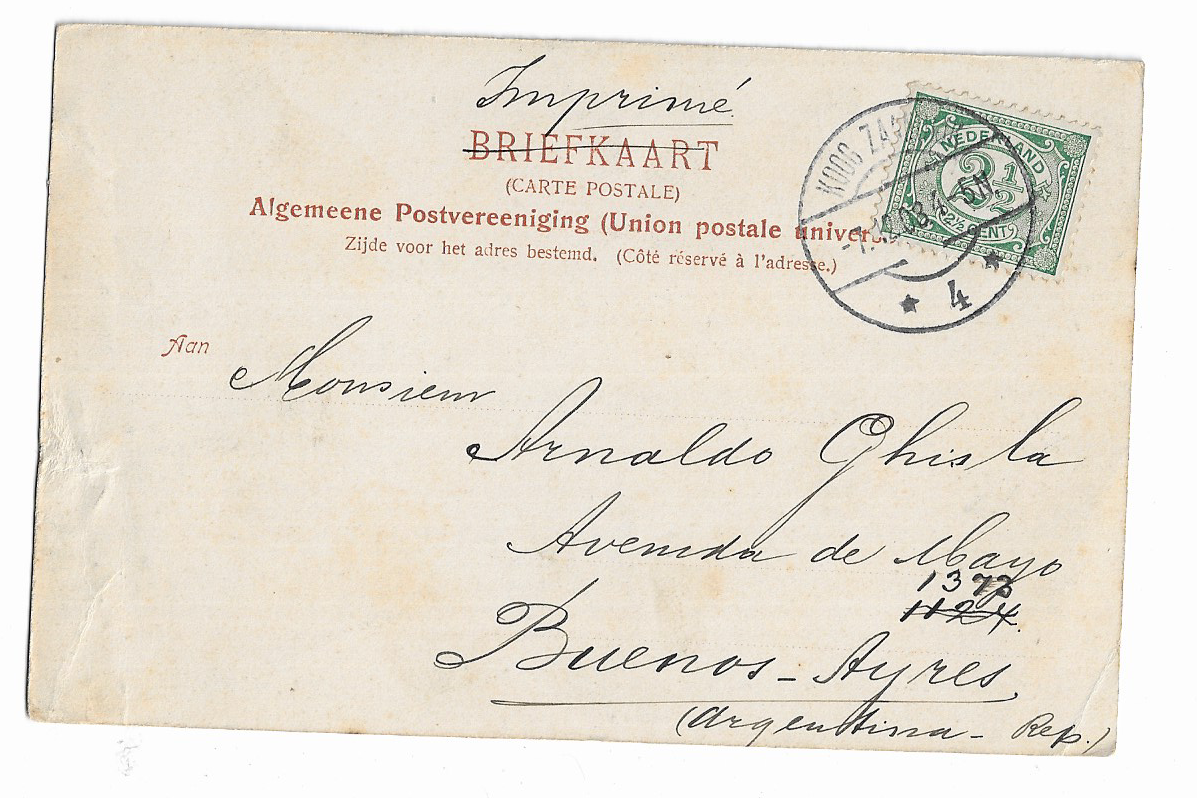 Imprimé
BRIEFKAART
(CARTE POSTALE)
Algemeene Postvereeniging (Union postale univers
Zijde voor het adres bestemd. (Côté réservé à l'adresse.)
NEDERLAND
2½
2½ CENT
KOOG ZA
4-5N
4
Aan
Monsieur
Arnaldo Ghisla
Avenida de Mayo
1373
1124.
Buenos-Ayres
(Argentina-Rep.)